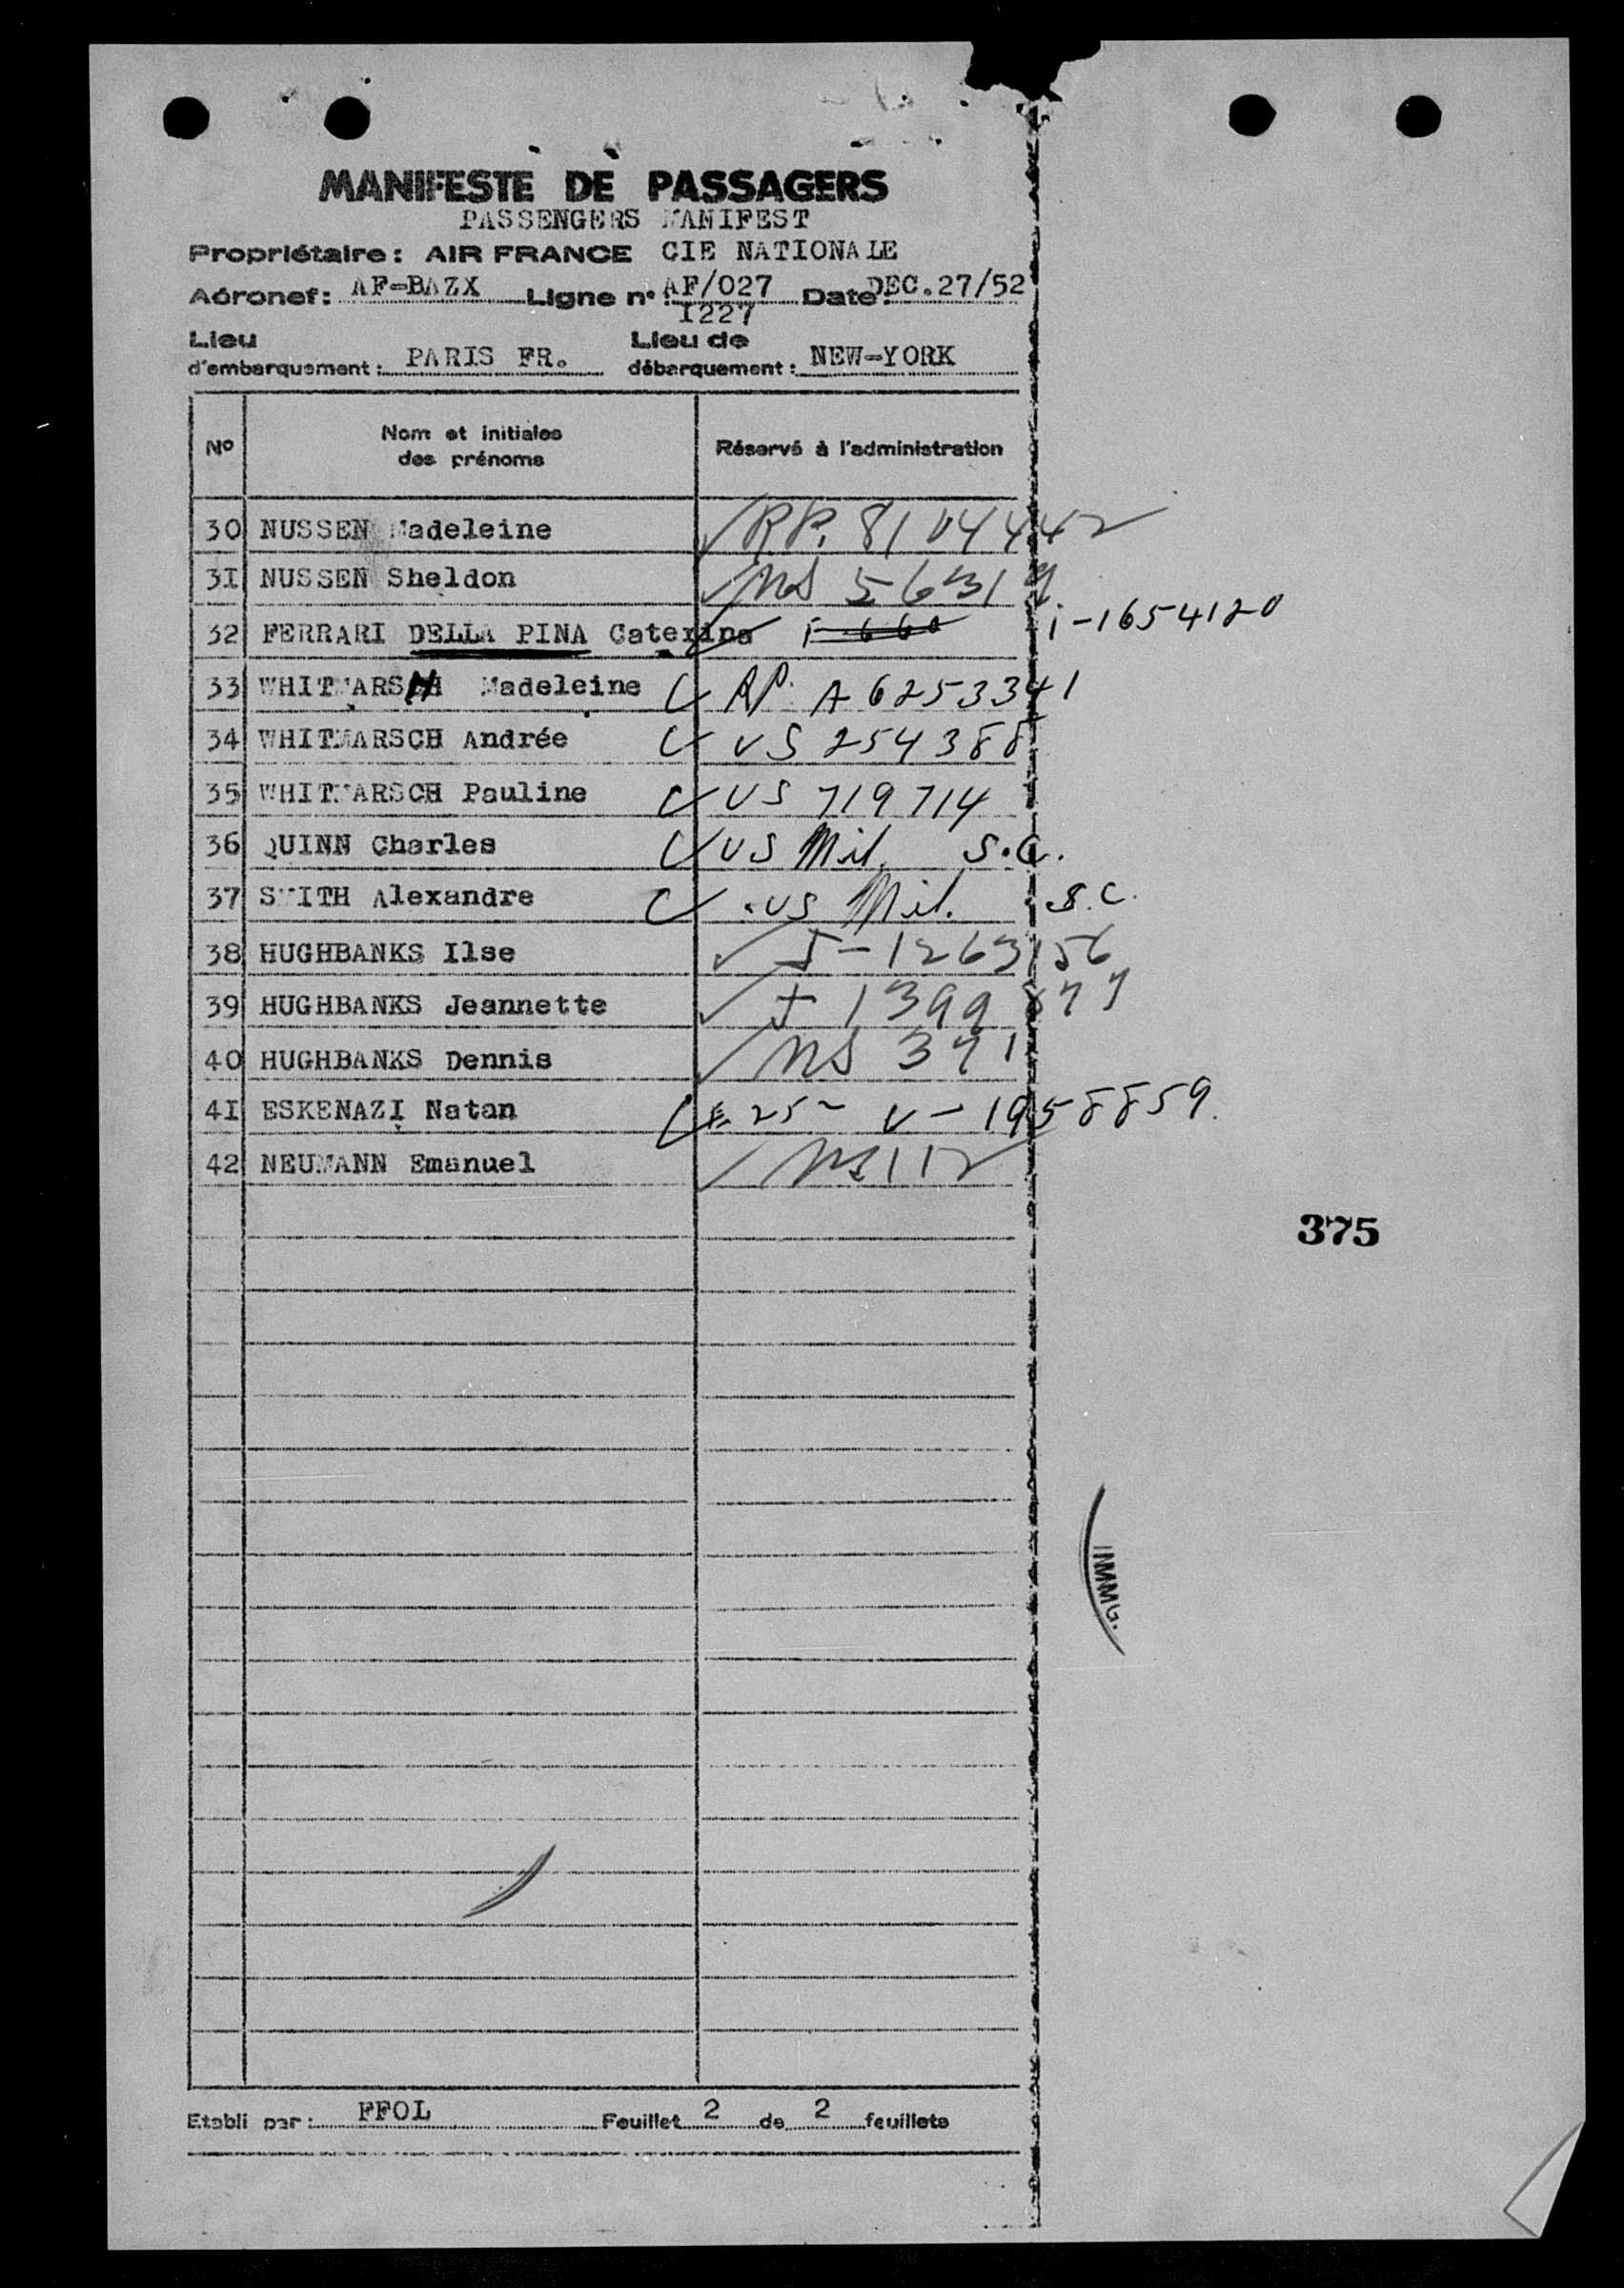 MANIFESTE DE PASSAGERS
PASSENGERS MANIFEST
Propriétaire: AIR FRANCE CIE NATIONALE
Aéronef: AF-BAZX Ligne n°: AF/027 Date: DEC.27/52
I227
Lieu d'embarquement: PARIS FR. Lieu de débarquement: NEW-YORK
N° Nom et initiales des prénoms Réservé à l'administration
30 NUSSEN Madeleine RP. 8104442
3I NUSSEN Sheldon
32 FERRARI DELLA PINA Caterina i-1654120
33 WHITMARSH Madeleine RP. A6253341
34 WHITMARSCH Andrée VS 254388
35 WHITMARSCH Pauline US 719714
36 QUINN Charles US Mil. S.C.
37 SMITH Alexandre US Mil. S.C.
38 HUGHBANKS Ilse I-1263156
39 HUGHBANKS Jeannette
40 HUGHBANKS Dennis
4I ESKENAZI Natan V-1958859.
42 NEUMANN Emanuel
375
IMMG.
Etabli par: FFOL Feuillet 2 de 2 feuillets